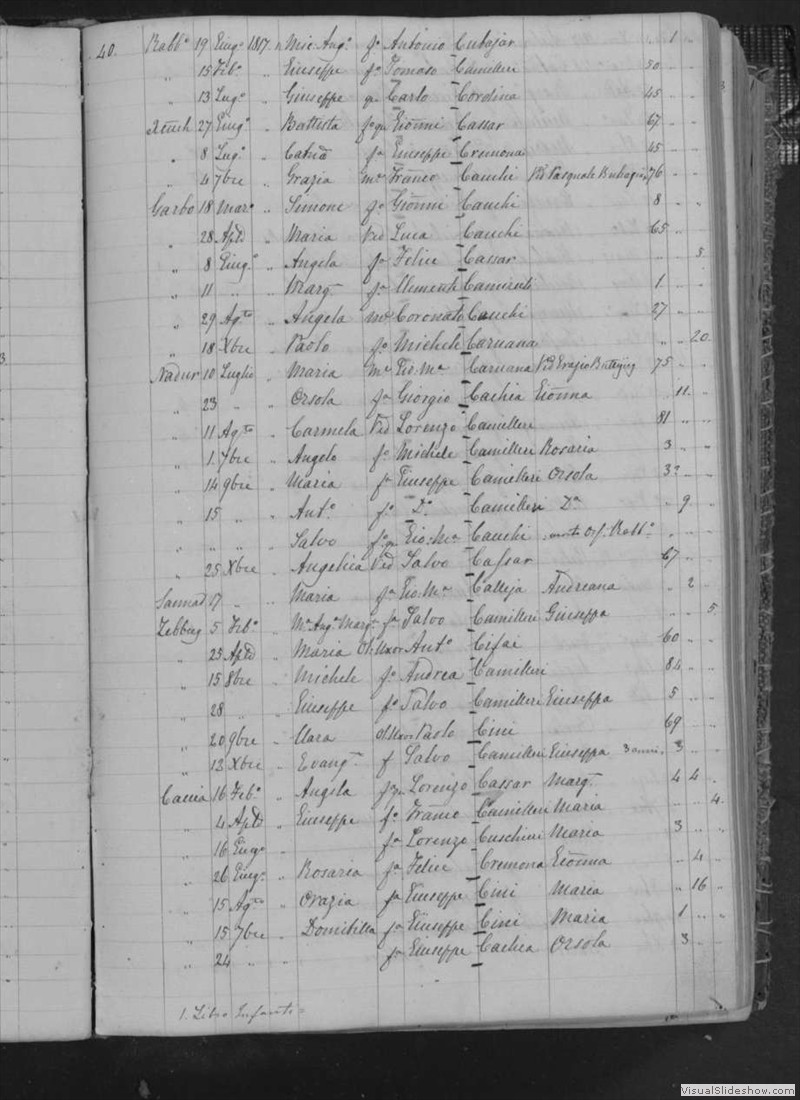 40. Rabbo 19 Giugo 1817 Mic. Ango fo Antonio Cubajar 1 " "
" 15 Febo " Giuseppe fo Tomaso Camilleri 50 " "
" 13 Lugo " Giuseppe qm Carlo Cordina 45 " "
Xeuch 27 Giugo " Battista Gionni Cassar 67 " "
" 8 Lugo " Catna fa Giuseppe Cremona 45 " "
" 4 7bre " Grazia me Franco Cauchi Va Pasquale 76 " "
Garbo 18 Maro " Simone fo Gionni Cauchi 8 " "
" 28 Aple " Maria Ved Luca Cauchi 65 " "
" 8 Giugo " Angela fa Felice Cassar " 5
" 11 " " Marga fa Clemente 1 " "
" 29 Agto " Angela me Coronato Cauchi 27 " "
" 18 Xbre " Paolo fo Michele Caruana " " 20
Nadur 10 Luglio " Maria Me Gio. Ma Caruana 75 " "
" 23 " " Orsola fa Giorgio Cachia Gionna " 11 "
" 11 Agto " Carmela Ved Lorenzo Camilleri 81 " "
" 1 7bre " Angelo fo Michele Camilleri Rosaria 3 " "
" 14 9bre " Maria fa Giuseppe Camilleri Orsola 3? " "
" 15 " " Anto fo Do Camilleri Da " 9 "
" " " " Salvo Gio. Ma Cauchi morto Rabbo
" 25 Xbre " Angelica Ved Salvo Cassar 67
Sannat 17 " " Maria fa Gio. Ma Calleja Andreana " 2 "
Zebbug 5 Febo " Ma Anga Marga fa Salvo Camilleri Giuseppa " " 5
" 25 Aple " Maria Anto Cefai 60 " "
" 15 8bre " Michele fo Andrea Camilleri 84 " "
" 28 " " Giuseppe fo Salvo Camilleri Giuseppa 5 " "
" 20 9bre " Clara Paolo Cini 69 " "
" 13 Xbre " Evangta f Salvo Camilleri Giuseppa 3 anni. 3 " "
Caccia 16 Febo " Angela Lorenzo Cassar Marga 4 4 "
" 4 Aple " Giuseppe fo Franco Camilleri Maria " " 4
" 16 Giugo " fa Lorenzo Cuschieri Maria 3 " "
" 26 Giugo " Rosaria fa Felice Cremona Gionna " 4 "
" 15 Agto " Grazia fa Giuseppe Cini Maria " 16 "
" 15 7bre " Domitilla fa Giuseppe Cini Maria 1 " "
" 24 " fa Giuseppe Cachia Orsola 3 " "
1. Libro Infanti
VisualSlideshow.com